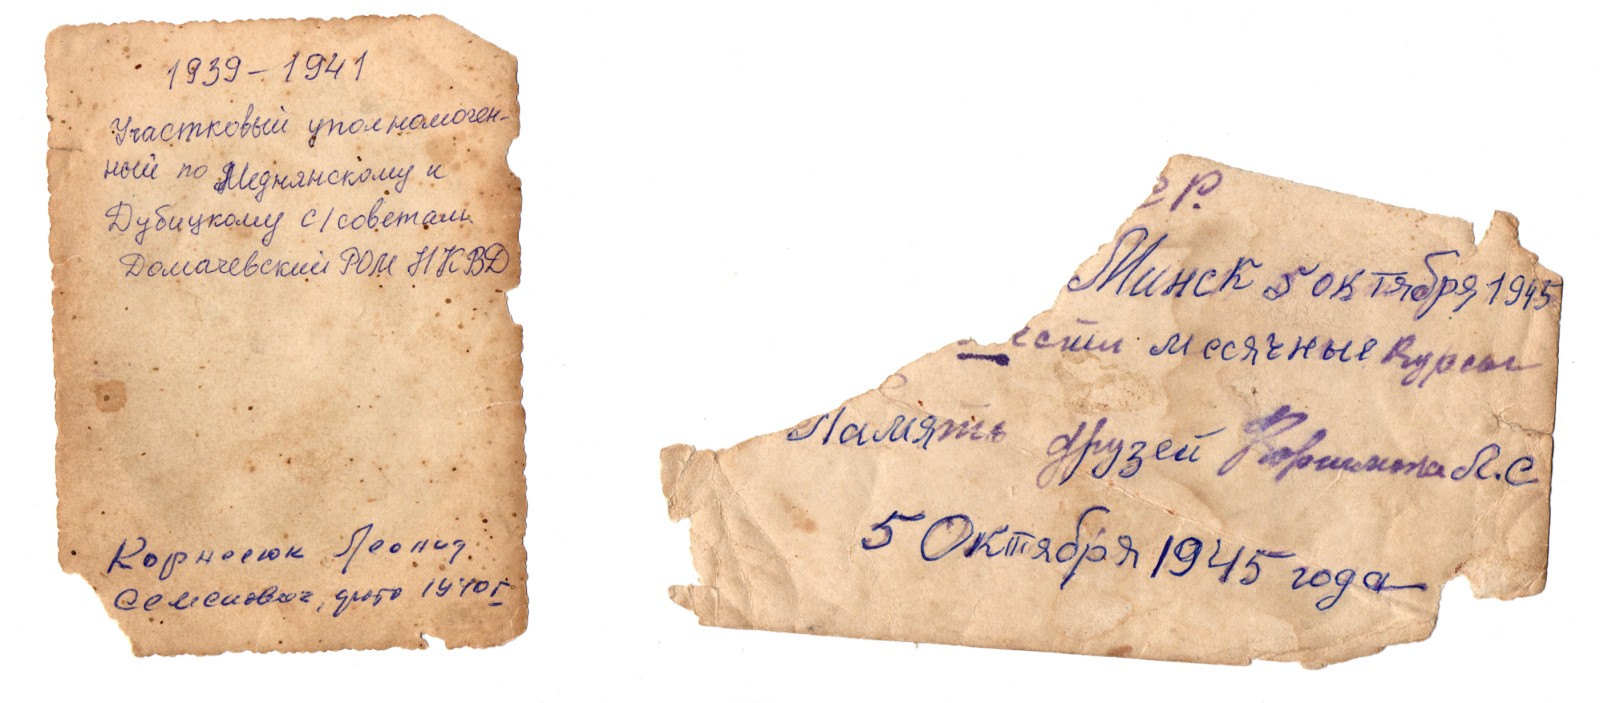 1939 – 1941
Участковый уполномочен-
ный по Меднянскому и
Дубицкому с/советам
Домачевский РОМ НКВД
Корнесюк Леонид
Семенович, фото 1940 г
еР.
Минск 5 октября 1945
ести месячные Курсы
Память друзей Л.С
5 Октября 1945 года